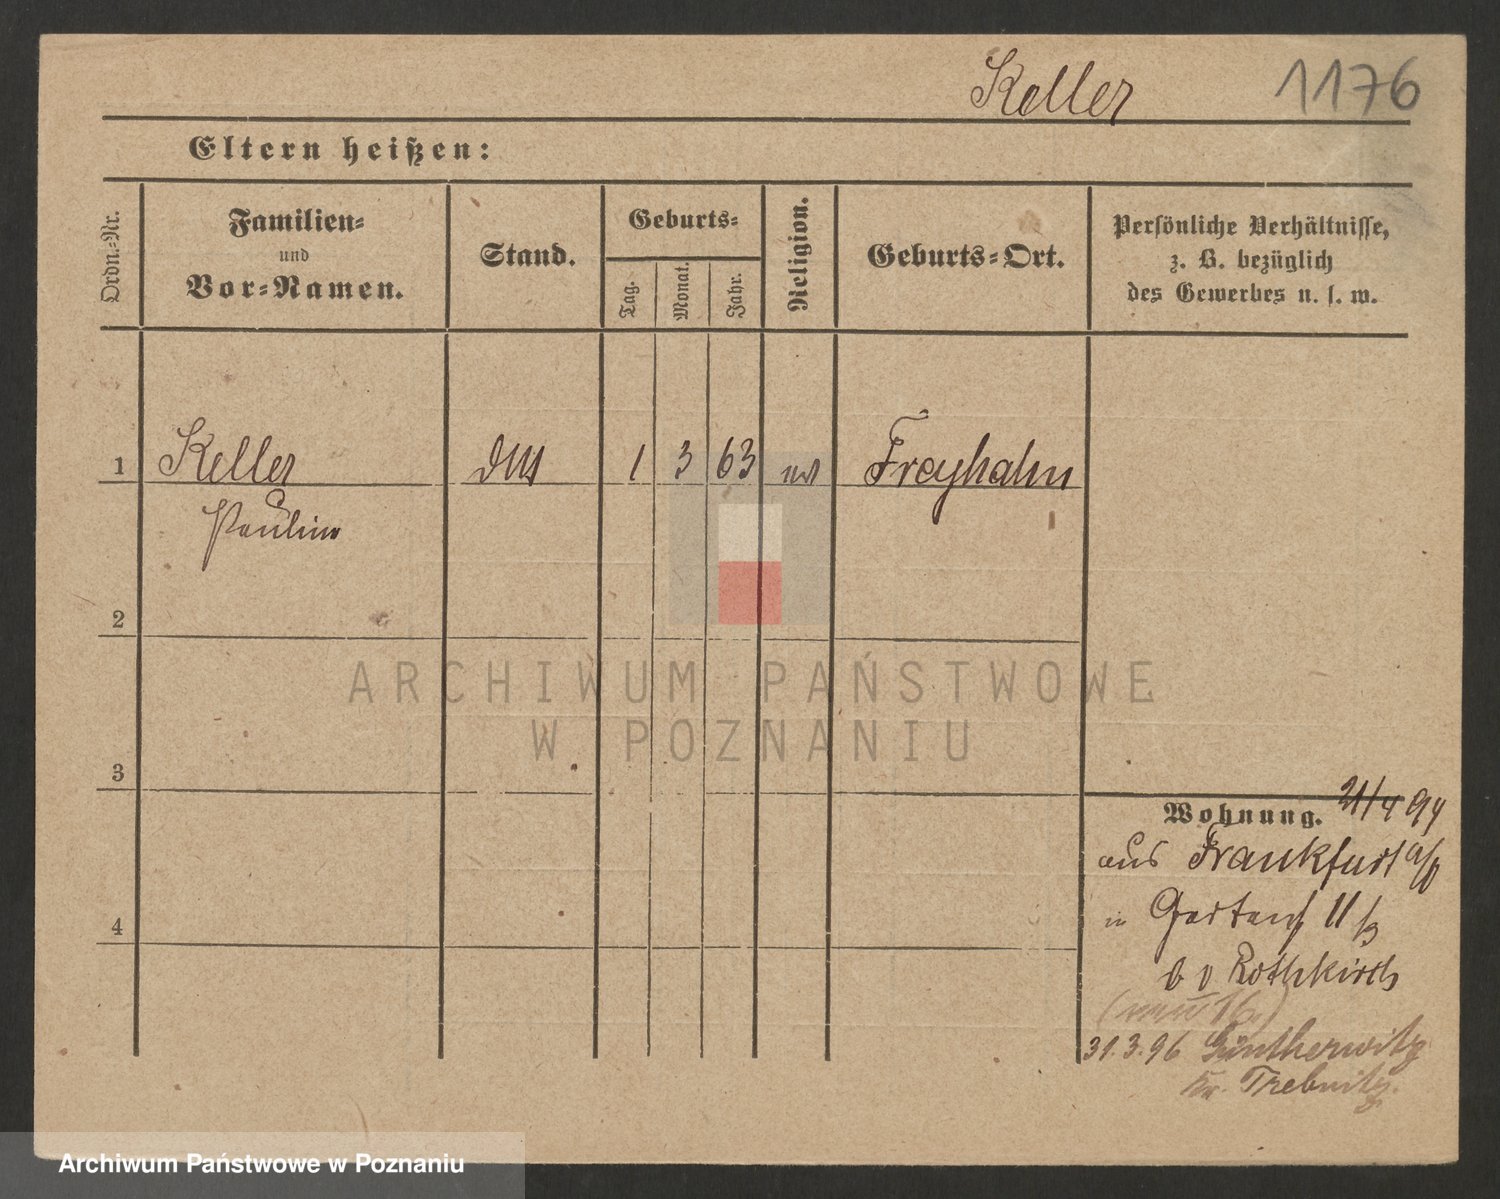 Keller 1176
Eltern heißen:
Ordn.-Nr.
Familien-
und
Vor-Namen.
Stand.
Geburts-
Tag.
Monat.
Jahr.
Religion.
Geburts-Ort.
Persönliche Verhältnisse,
z. B. bezüglich
des Gewerbes u. s. w.
1 Keller 1 3 63 Freyhahn
Pauline
2
3
4
21/4 94
Wohnung.
aus Frankfurt a/O
in Gartenst 11
b v Rothkirch
31.3.96 Güntherwitz
Kr. Trebnitz.
ARCHIWUM PAŃSTWOWE
W POZNANIU
Archiwum Państwowe w Poznaniu